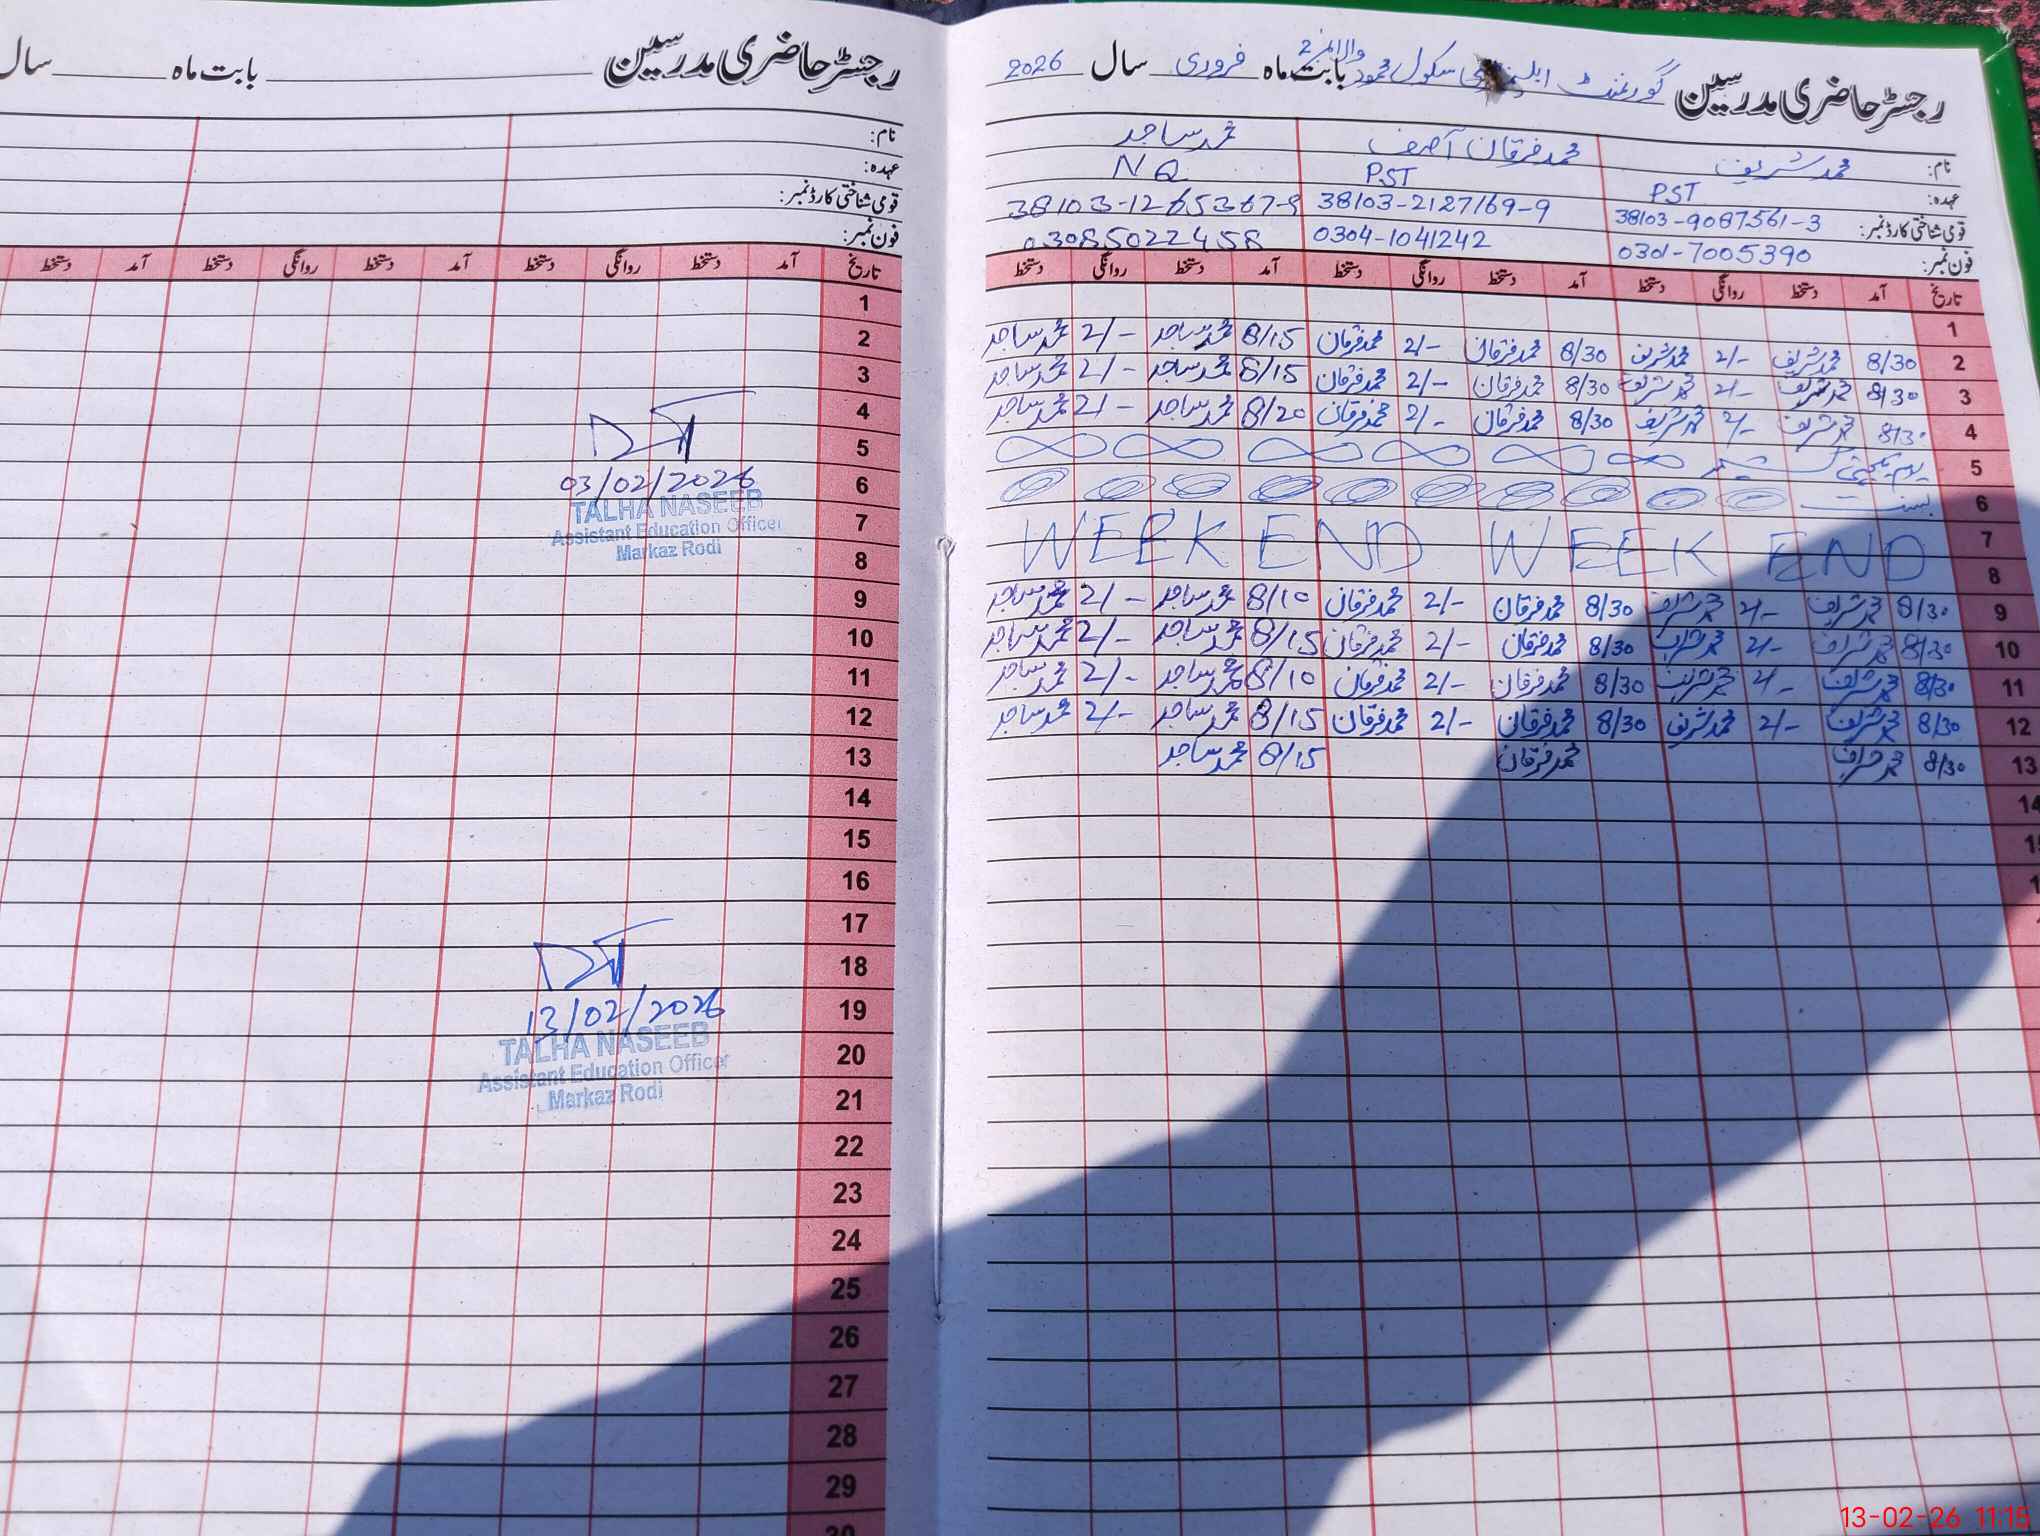 رجسٹر حاضری مدرسین گورنمنٹ ایلیمنٹری سکول محمود والا نمبر 2 بابت ماہ فروری سال 2026
نام: محمد شریف محمد فرقان آصف محمد ساجد
عہدہ: PST PST N Q
قومی شناختی کارڈ نمبر: 38103-9087561-3 38103-2127169-9 38103-1265367-9
فون نمبر: 0301-7005390 0304-1041242 03085022458
تاریخ آمد دستخط روانگی دستخط آمد دستخط روانگی دستخط آمد دستخط روانگی دستخط
1
2 8/30 محمد شریف 2/- محمد شریف 8/30 محمد فرقان 2/- محمد فرقان 8/15 محمد ساجد 2/- محمد ساجد
3 8/30 محمد شریف 2/- محمد شریف 8/30 محمد فرقان 2/- محمد فرقان 8/15 محمد ساجد 2/- محمد ساجد
4 8/30 محمد شریف 2/- محمد شریف 8/30 محمد فرقان 2/- محمد فرقان 8/20 محمد ساجد 2/- محمد ساجد
5 یوم یکجہتی کشمیر
6 بسنت
7 WEEK END WEEK END
8
9 8/30 محمد شریف 2/- محمد شریف 8/30 محمد فرقان 2/- محمد فرقان 8/10 محمد ساجد 2/- محمد ساجد
10 8/30 محمد شریف 2/- محمد شریف 8/30 محمد فرقان 2/- محمد فرقان 8/15 محمد ساجد 2/- محمد ساجد
11 8/30 محمد شریف 2/- محمد شریف 8/30 محمد فرقان 2/- محمد فرقان 8/10 محمد ساجد 2/- محمد ساجد
12 8/30 محمد شریف 2/- محمد شریف 8/30 محمد فرقان 2/- محمد فرقان 8/15 محمد ساجد 2/- محمد ساجد
13 8/30 محمد شریف محمد فرقان 8/15 محمد ساجد
14
رجسٹر حاضری مدرسین بابت ماہ سال
نام:
عہدہ:
قومی شناختی کارڈ نمبر:
فون نمبر:
تاریخ آمد دستخط روانگی دستخط آمد دستخط روانگی دستخط آمد دستخط
1
2
3
4
5
6 03/02/2026
TALHA NASEEB
7 Assistant Education Officer
8 Markaz Rodi
9
10
11
12
13
14
15
16
17
18
19 13/02/2026
20 TALHA NASEEB
Assistant Education Officer
21 Markaz Rodi
22
23
24
25
26
27
28
29
30
13-02-26 11:15